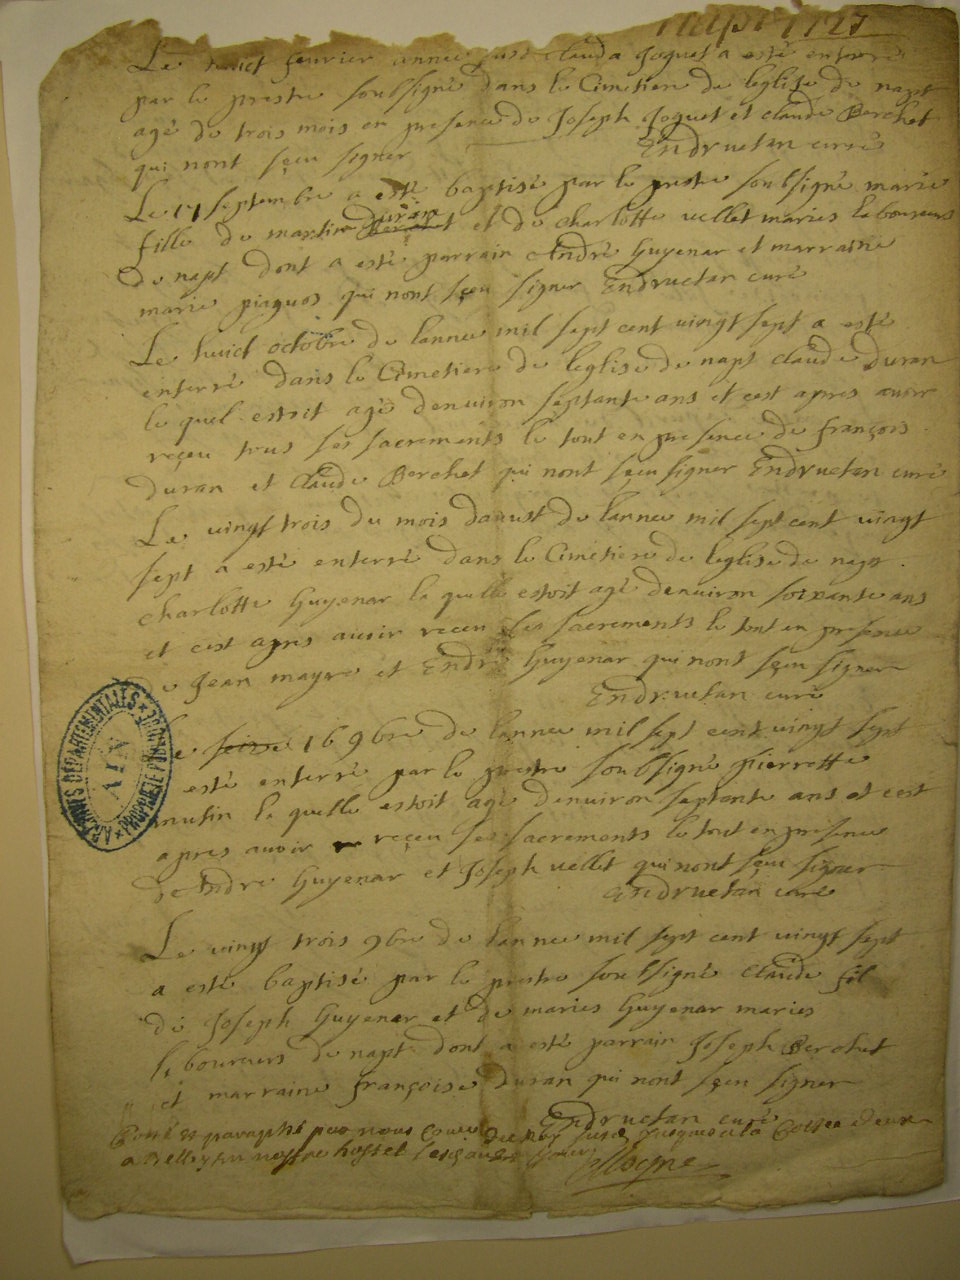 Napt 1727
Le huict feurier année susd Clauda Joguet a esté enterré
par le prestre soubsigné dans le Cimetiere de leglise de napt
agé de trois mois en presence de Joseph Joguet et claude Berchet
qui nont sçeu signer Endruetan curé
Le 17 septembre a esté baptisé par le prestre soubsigné marie
fille de martin duran et de charlotte uellet maries laboureurs
de napt dont a esté parrain André Guyenar et marraine
marie piaguos qui nont sçeu signer Endruetan curé
Le huict octobre de lannee mil sept cent uingt sept a esté
enterré dans le Cimetiere de leglise de napt claude duran
le quel estoit agé denuiron septante ans et cest apres auoir
reçeu tous ses sacrements le tout en presence de françois
duran et claude Berchet qui nont sçeu signer Endruetan curé
Le uingt trois du mois daoust de lannee mil sept cent uingt
sept a esté enterré dans le Cimetiere de leglise de napt
charlotte Guyenar la quelle estoit agé denuiron soixante ans
et cest apres auoir reçeu ses sacrements le tout en presence
de Jean mayre et Endré Guyenar qui nont sçeu signer
Endruetan curé
Le 16 9bre de lannee mil sept cent uingt sept
esté enterré par le prestre soubsigné pierrette
mutin la quelle estoit agé denuiron septante ans et cest
apres auoir reçeu ses sacrements le tout en presence
de Andre Guyenar et Joseph uellet qui nont sçeu signer
Endruetan curé
Le uingt trois 9bre de lannee mil sept cent uingt sept
a esté baptisé par le prestre soubsigné claude fil
de Joseph Guyenar et de maries Guyenar maries
laboureurs de napt dont a esté parrain Joseph Berchet
et marraine françoise duran qui nont sçeu signer
Endruetan curé
Cotté et paraphé par nous
a Belley en nostre hostel
ARCHIVES DEPARTEMENTALES
AIN
PROPRIETE PUBLIQUE